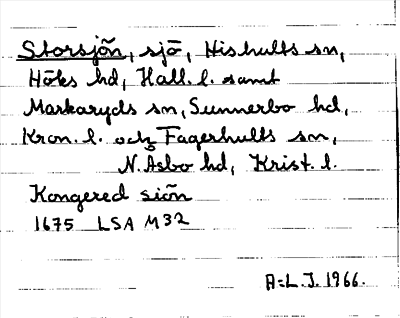 Storsjön, sjö, Hishults sn,
Höks hd, Hall. l. samt
Markaryds sn, Sunnerbo hd,
Kron. l. och Fagerhults sn,
N. Åsbo hd, Krist. l.
Kongered siön
1675 LSA M32
A:L.J. 1966.